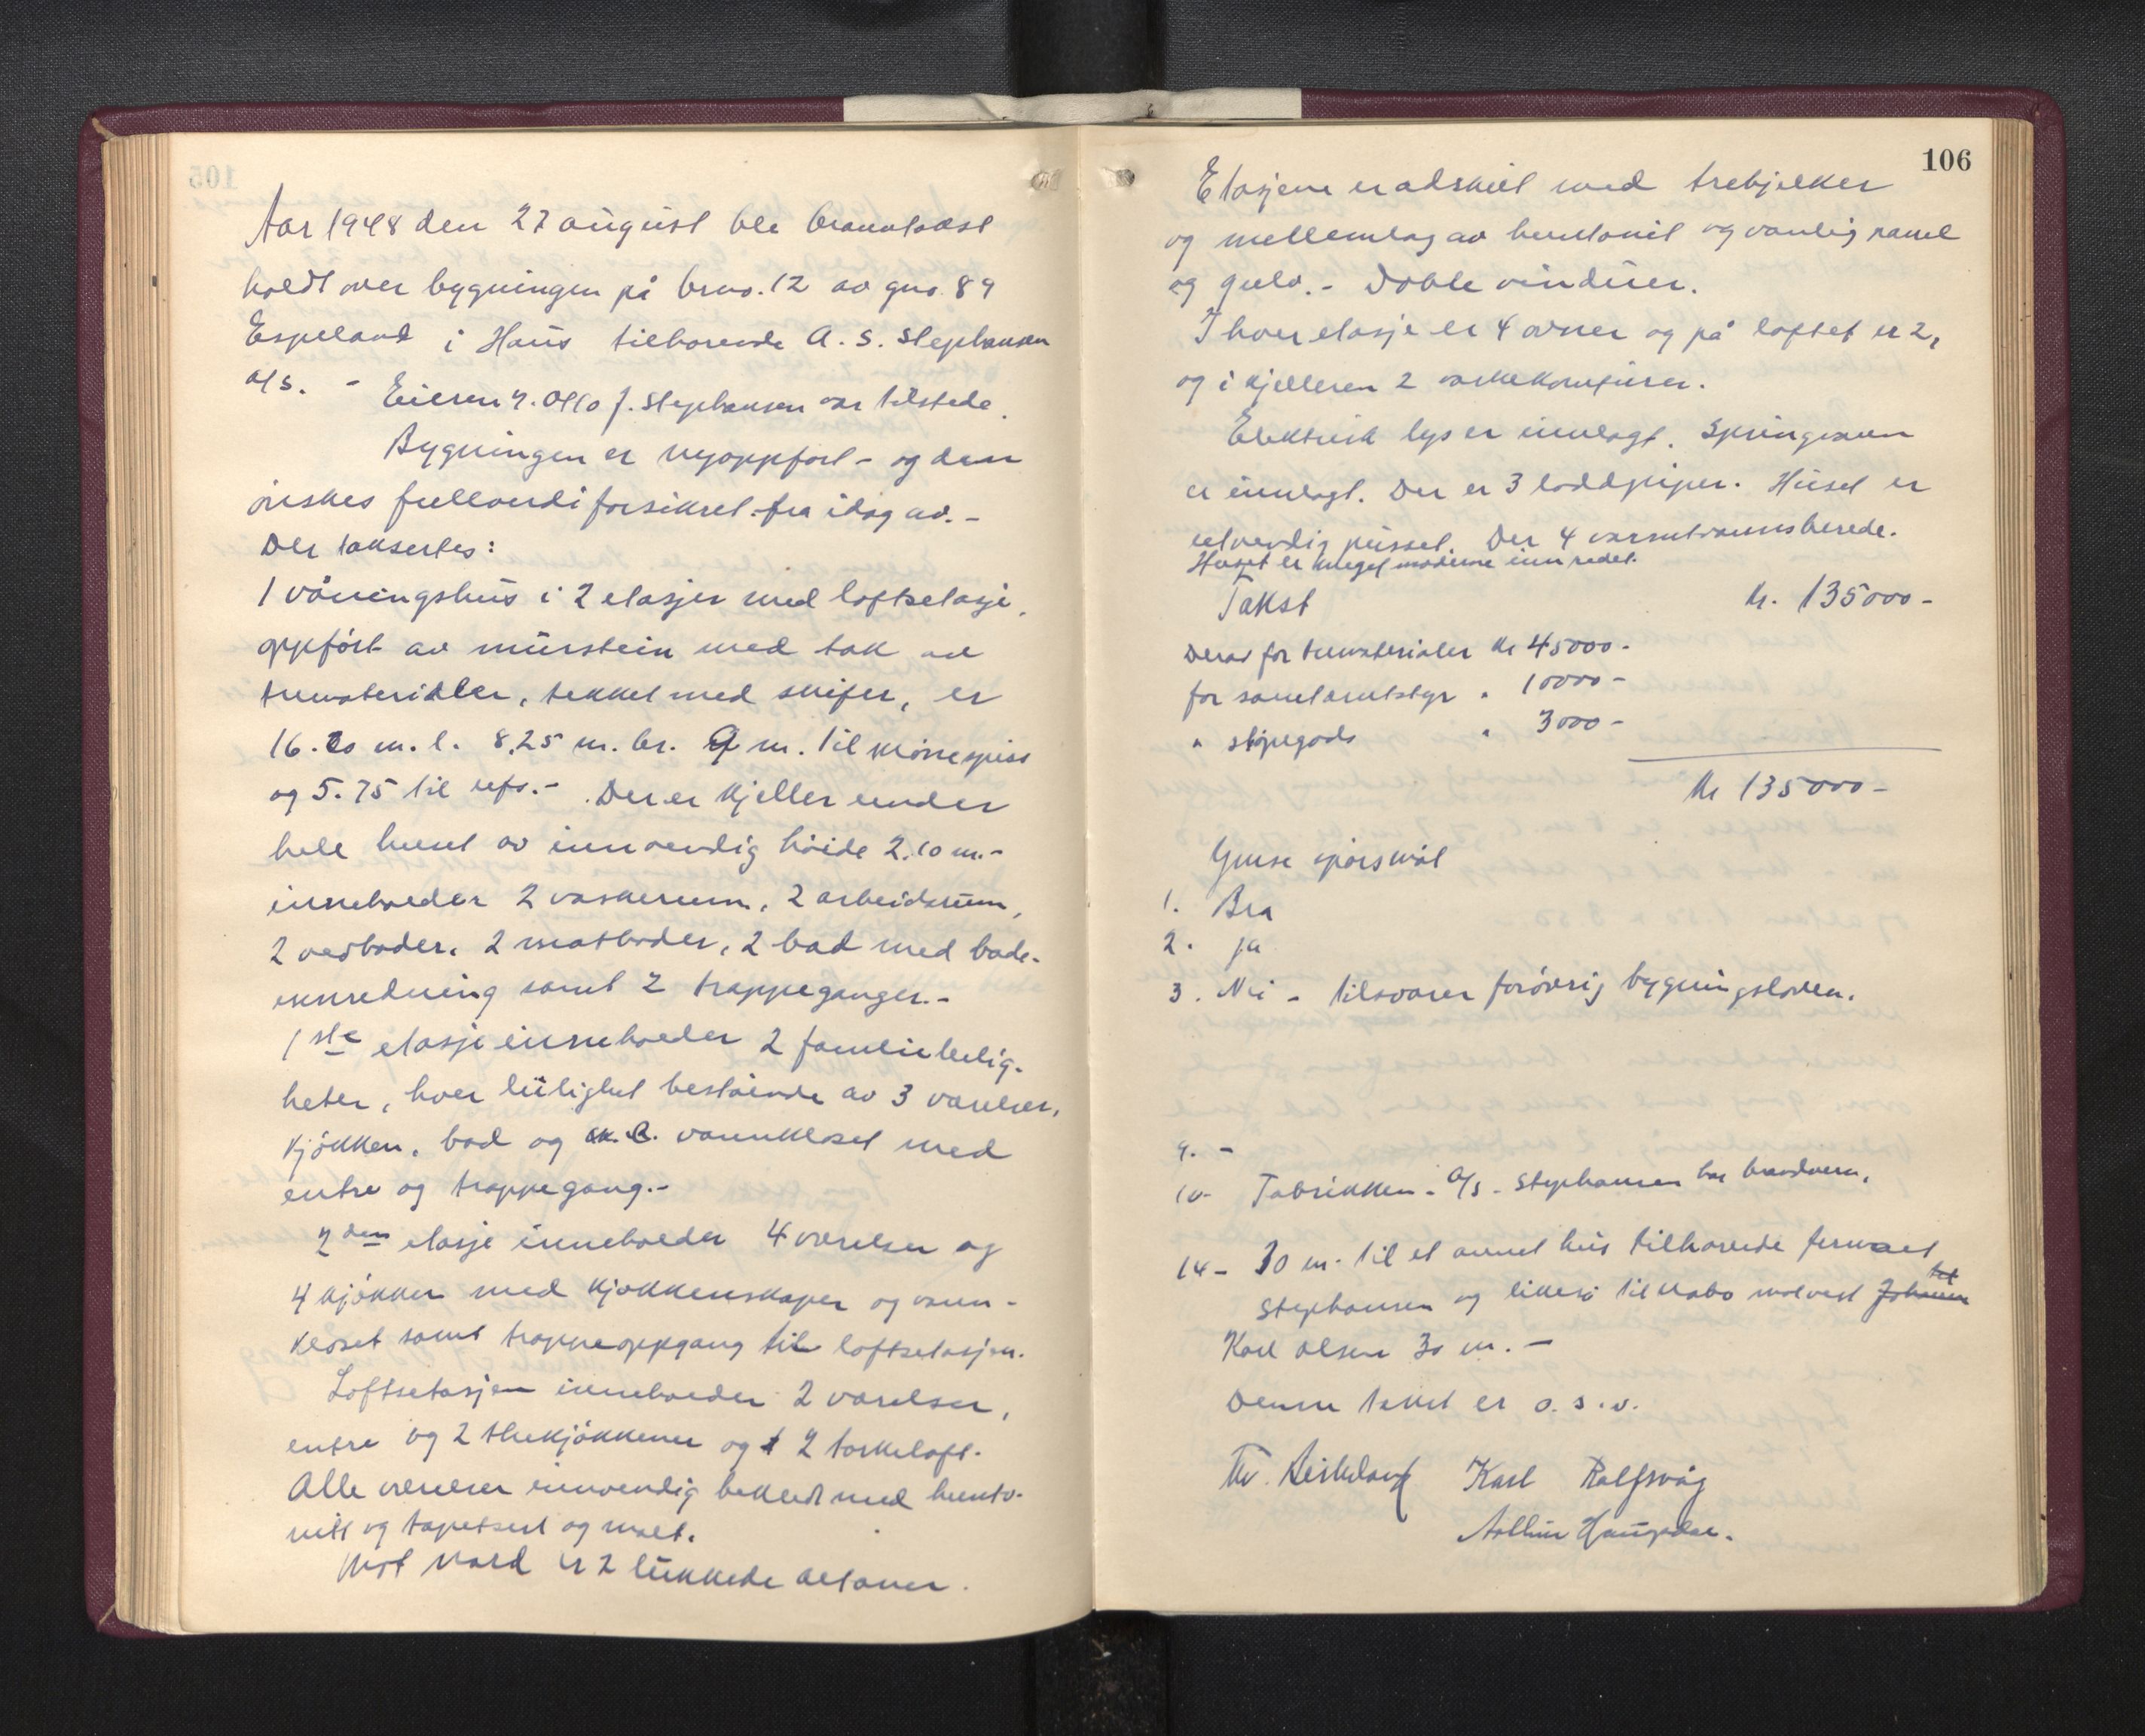 Aar 1948 den 27 august ble branntakst
holdt over bygningen på brno. 12 av gno. 89
Espeland i Haus tilhorende A. S. Stephansen
a/s. - Eieren v. Otto J. Stephansen var tilstede.
Bygningen er nyoppfort - og den
ønskes fullverdiforsikret fra idag av. -
Der taksertes:
1 våningshus i 2 etasjer med loftsetasje,
oppført av mürstein med tak av
trematerialer, tekket med skifer, er
16.20 m. l. 8,25 m. br. 9 m. til mönespiss
og 5.75 til ufs. - Der er kjeller under
hele huset av innvendig höide 2.10 m. -
inneholder 2 vaskerum, 2 arbeidsrum,
2 vedboder, 2 matboder, 2 bad med bade-
innredning samt 2 trappeganger. -
1ste etasje inneholder 2 familieleilig-
heter, hver leilighet bestående av 3 værelser,
kjökken, bad og vannkloset med
entre og trappegang. -
2den etasje inneholder 4 værelser og
4 kjökken med kjøkkenskaper og vann-
kloset samt trappeoppgang til loftsetasjen.
Loftsetasjen inneholder 2 værelser,
entre og 2 thekjökkener og 2 torkeloft.
Alle værelser innvendig bekledt med hunto-
nitt og tapetsert og malt.
Mot nord er 2 lukkede altaner.
106
Etasjene er adskilt med trebjelker
og mellemlag av huntonit og vanlig panel
og gulv. - Doble vinduer.
I hver etasje er 4 ovner og på loftet er 2,
og i kjelleren 2 vaskekomfurer.
Elektrisk lys er innlagt. Springvann
er innlagt. Der er 3 loddpiper. Huset er
utvendig pusset. Der 4 varmtvannsberede.
Huset er meget moderne innredet.
Takst kr. 135000 -
Derav for trematerialer kr 45000 -
for sanitærutstyr " 10000 -
" støpegods " 3000 -
kr 135000 -
Guse spörsmål
1. Bra
2. ja
3. Nei - tilsvarer forövrig bygningsloven.
9. -
10 - Fabrikken - A/S - Stephansen har brandvern.
14 - 30 m. til et annet hus tilhørende firmaet
Stephansen og likeså til nabo motvest
Karl Olsen 30 m. -
Denne takst er o. s. v.
Karl Rolfsvåg
Arthur Haugedal.